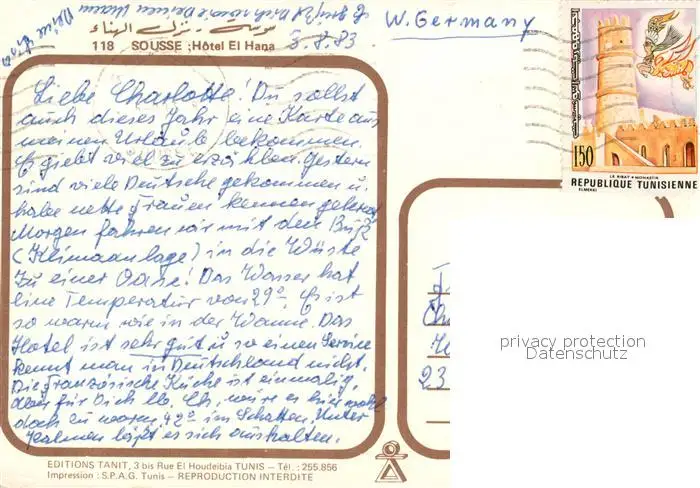 W. Germany
سوسة - نزل الهناء
118 SOUSSE : Hôtel El Hana
3.8.83
Liebe Charlotte! Du sollst
auch dieses Jahr eine Karte aus
meinen Urlaub bekommen.
Es giebt viel zu erzählen. Gestern
sind viele Deutsche gekommen u.
habe nette Frauen kennen gelernt
Morgen fahren wir mit den Buß
(Klimaanlage) in die Wüste
zu einer Oase! Das Wasser hat
eine Temperatur von 29°. Es ist
so warm wie in der Wanne. Das
Hotel ist sehr gut u. so einen Service
kennt man in Deutschland nicht.
Die Französische Küche ist einmalig,
aber für Dich lb. Ch. wäre es hier wohl
doch zu warm, 42° im Schatten. Unter
Palmen läßt es sich aushalten.
150
LE RIBAT • MONASTIR
REPUBLIQUE TUNISIENNE
ELMEKKI
23
privacy protection
Datenschutz
EDITIONS TANIT, 3 bis Rue El Houdeibia TUNIS - Tél. : 255.856
Impression : S.P.A.G. Tunis - REPRODUCTION INTERDITE